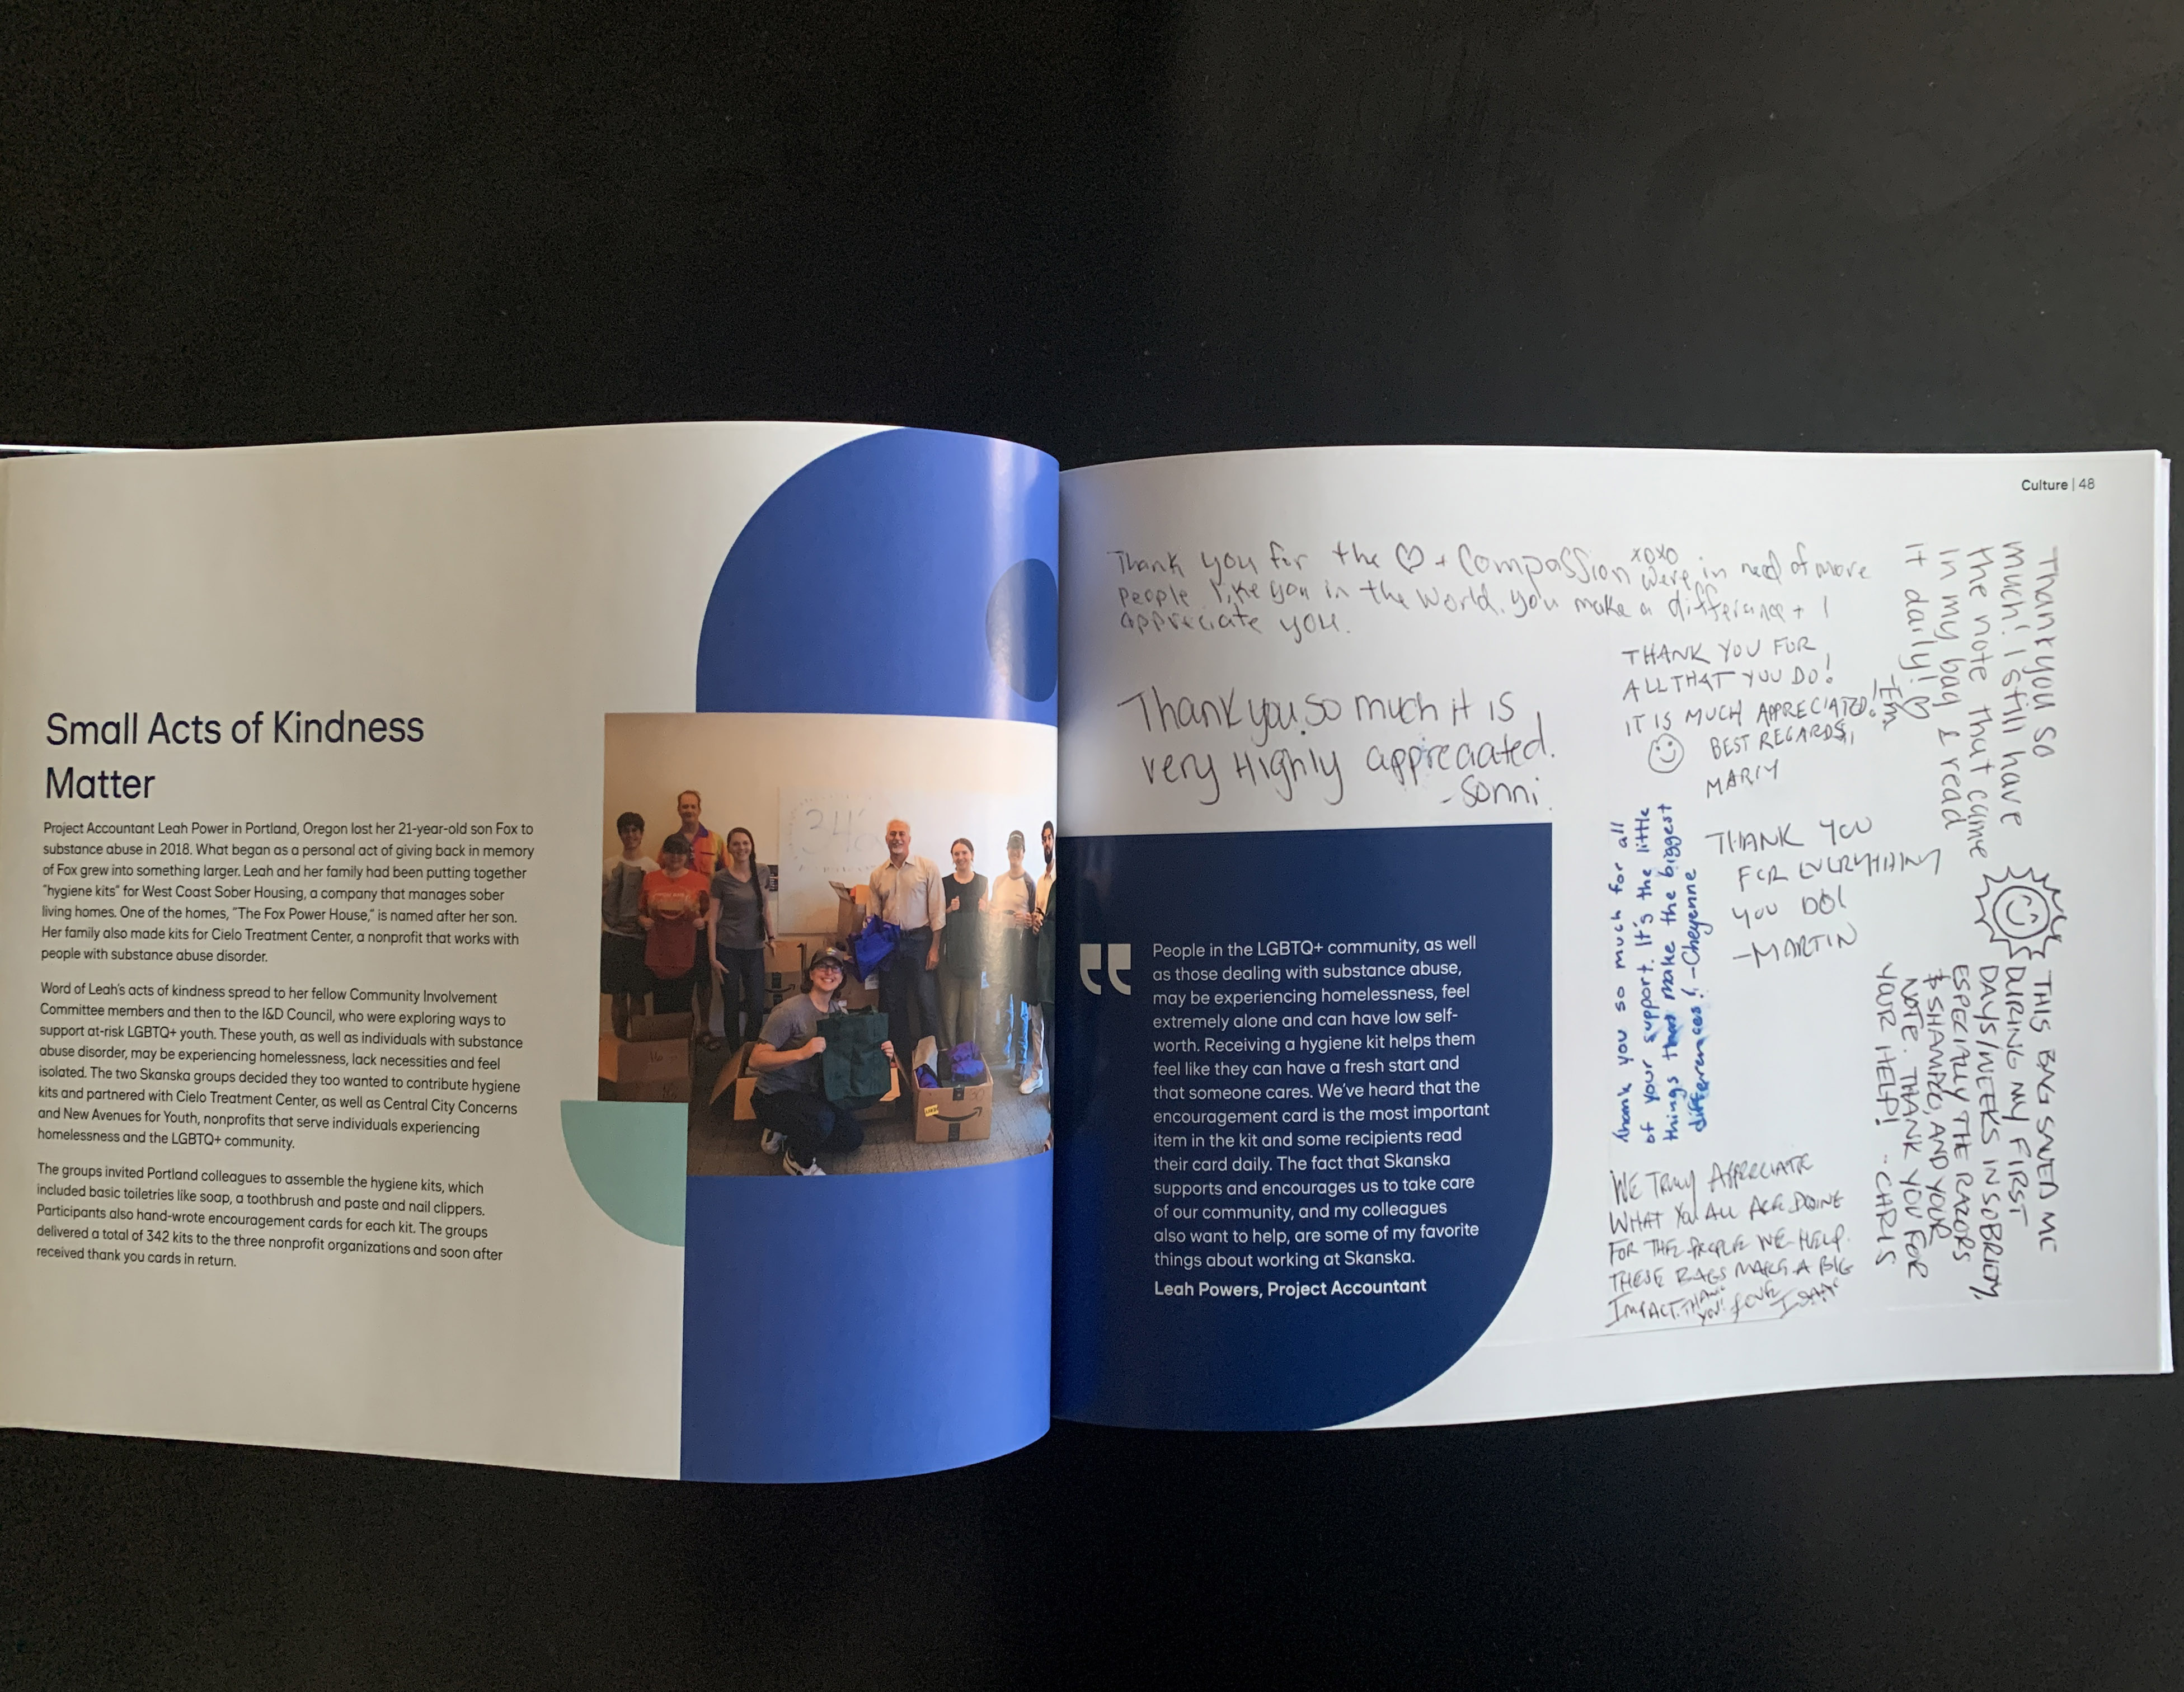 Small Acts of Kindness
Matter
Project Accountant Leah Power in Portland, Oregon lost her 21-year-old son Fox to
substance abuse in 2018. What began as a personal act of giving back in memory
of Fox grew into something larger. Leah and her family had been putting together
"hygiene kits" for West Coast Sober Housing, a company that manages sober
living homes. One of the homes, "The Fox Power House," is named after her son.
Her family also made kits for Cielo Treatment Center, a nonprofit that works with
people with substance abuse disorder.
Word of Leah's acts of kindness spread to her fellow Community Involvement
Committee members and then to the I&D Council, who were exploring ways to
support at-risk LGBTQ+ youth. These youth, as well as individuals with substance
abuse disorder, may be experiencing homelessness, lack necessities and feel
isolated. The two Skanska groups decided they too wanted to contribute hygiene
kits and partnered with Cielo Treatment Center, as well as Central City Concerns
and New Avenues for Youth, nonprofits that serve individuals experiencing
homelessness and the LGBTQ+ community.
The groups invited Portland colleagues to assemble the hygiene kits, which
included basic toiletries like soap, a toothbrush and paste and nail clippers.
Participants also hand-wrote encouragement cards for each kit. The groups
delivered a total of 342 kits to the three nonprofit organizations and soon after
received thank you cards in return.
342
Culture | 48
Thank you for the ♡ + Compassion xoxo were in need of more
people like you in the world. you make a difference + I
appreciate you.
Thank you so much it is
very Highly appreciated.
- Sonni
THANK YOU FOR
ALL THAT YOU DO!
IT IS MUCH APPRECIATED!
BEST REGARDS,
MARTY
Thank you so
much! I still have
the note that came
in my bag & read
it daily! ♡
-Em
THANK YOU
FOR EVERYTHING
YOU DO!
-MARTIN
Thank you so much for all
of your support. It's the little
things that make the biggest
differences! -Cheyenne
THIS BAG SAVED ME
DURING MY FIRST
DAYS/WEEKS IN SOBRIETY,
ESPECIALLY THE RAZORS
& SHAMPOO, AND YOUR
NOTE. THANK YOU FOR
YOUR HELP! - CHRIS
WE TRULY APPRECIATE
WHAT YOU ALL ARE DOING
FOR THE PEOPLE WE HELP.
THESE BAGS MAKE A BIG
IMPACT. THANK YOU! LOVE ISAAC
People in the LGBTQ+ community, as well
as those dealing with substance abuse,
may be experiencing homelessness, feel
extremely alone and can have low self-
worth. Receiving a hygiene kit helps them
feel like they can have a fresh start and
that someone cares. We've heard that the
encouragement card is the most important
item in the kit and some recipients read
their card daily. The fact that Skanska
supports and encourages us to take care
of our community, and my colleagues
also want to help, are some of my favorite
things about working at Skanska.
Leah Powers, Project Accountant